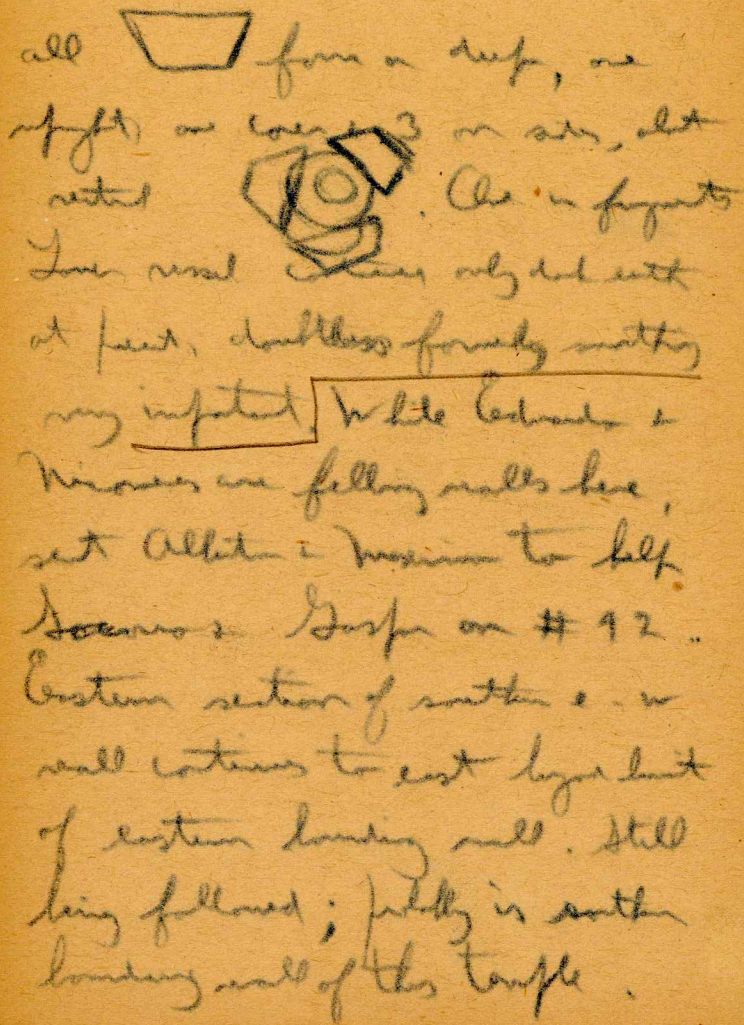 all form a deep, one
upright, one covered 3 on sides, abt
central. One in fragments
Lower vessel contains only dark earth
at present, doubtless formerly something
very important. While Eduardo &
are felling walls here,
sent & to help
Socorro & Gaspar on # 92.
Eastern section of southern e-w
wall continues to east beyond limit
of eastern bounding wall. Still
being followed; probably is southern
bounding wall of this temple.